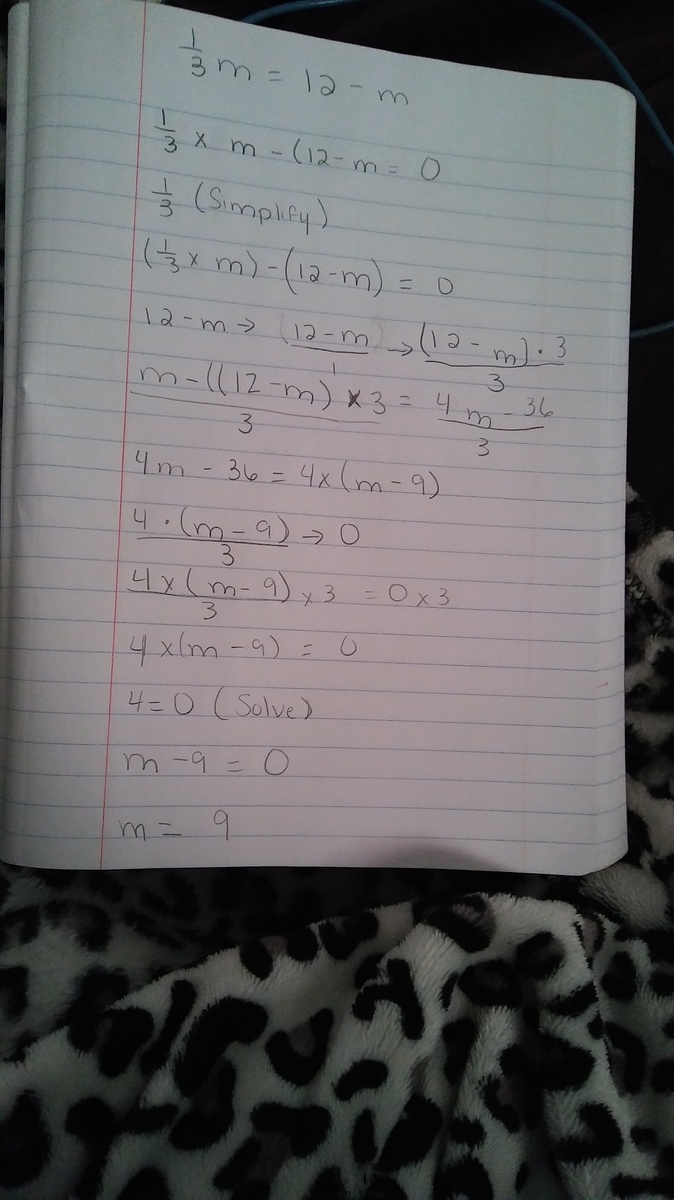 1/3 m = 12 - m
1/3 x m - (12 - m = 0
1/3 (Simplify)
(1/3 x m) - (12 - m) = 0
12 - m → (12 - m)/1 → (12 - m) · 3/3
m - ((12 - m) x 3/3 = 4m - 36/3
4m - 36 = 4 x (m - 9)
4 · (m - 9)/3 → 0
4 x (m - 9)/3 x 3 = 0 x 3
4 x (m - 9) = 0
4 = 0 (Solve)
m - 9 = 0
m = 9